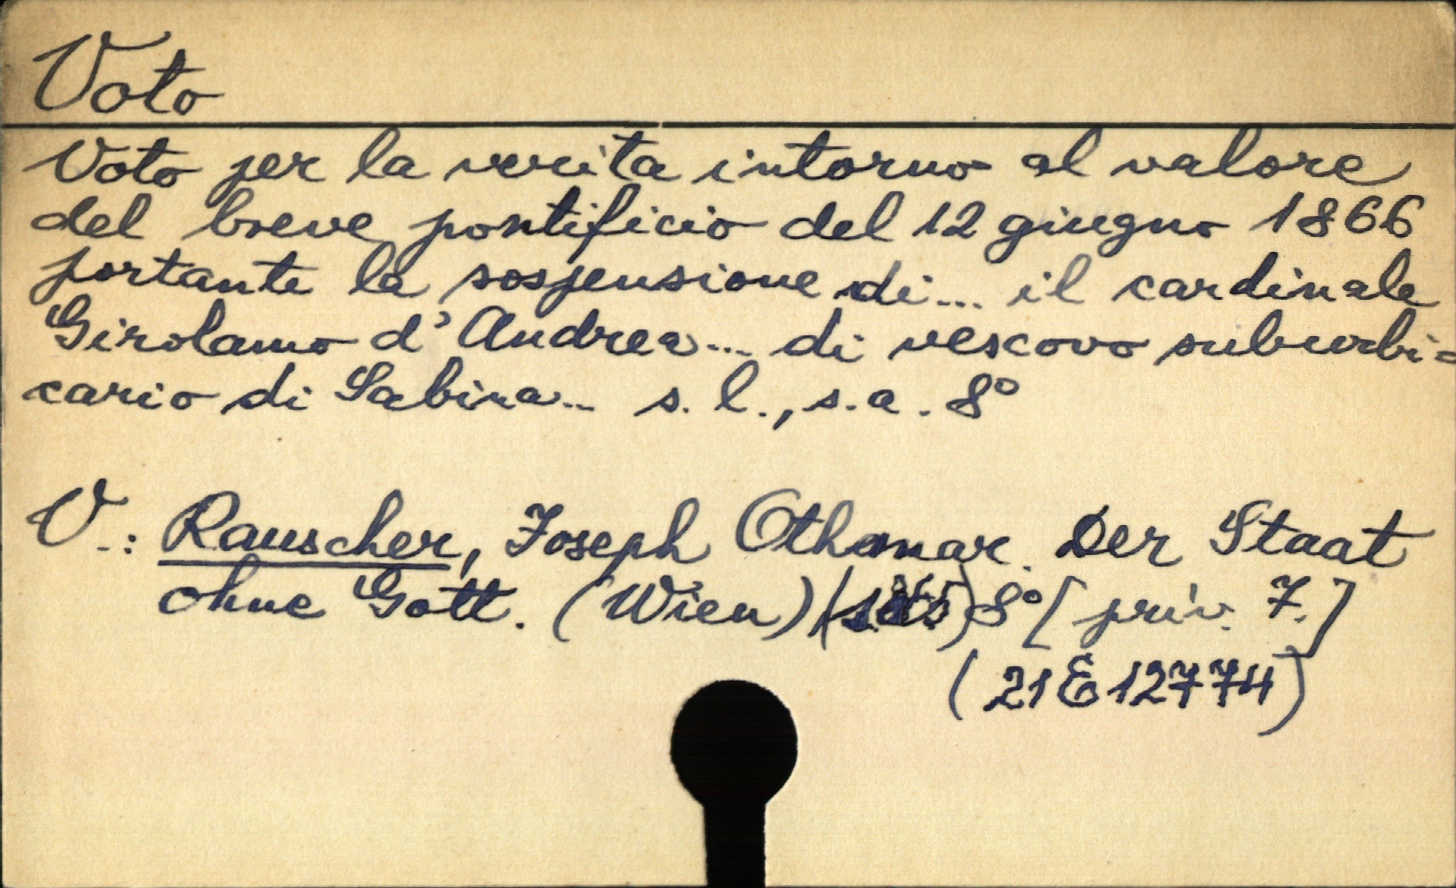 Voto
Voto per la verita intorno al valore
del breve pontificio del 12 giugno 1866
portante la sospensione di... il cardinale
Girolamo d'Andrea... di vescovo suburbi=
cario di Sabina... s. l., s. a. 8°
V.: Rauscher, Joseph Othmar. Der Staat
ohne Gott. (Wien) (1865) 8° [priv. 7.]
(21 E 12774)